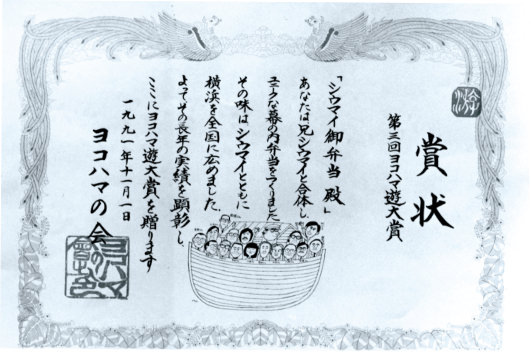 賞状
第三回ヨコハマ遊大賞
「シウマイ御弁当 殿」
あなたは兄シウマイと合体し
ユニークな幕の内弁当をつくりました
その味はシウマイとともに
横浜を全国に広めました
よってその長年の実績を顕彰し
ここにヨコハマ遊大賞を贈ります
一九九一年十一月一日
ヨコハマの会